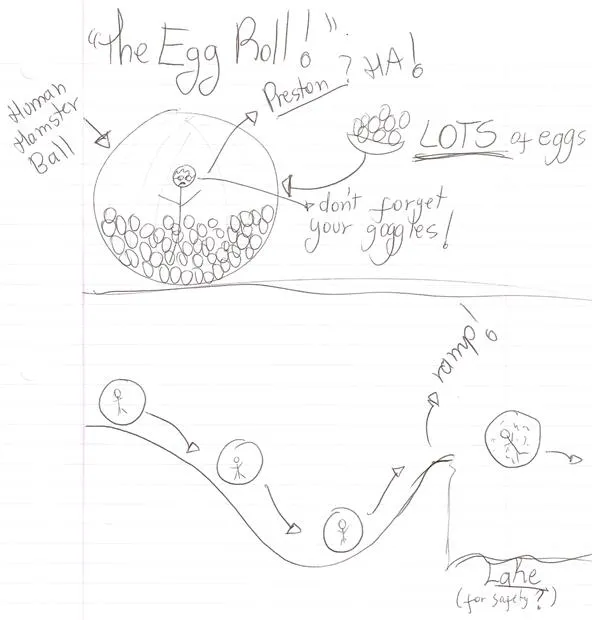 "The Egg Roll!"
Preston? HA!
Human
Hamster
Ball
LOTS of eggs
don't forget
your goggles!
ramp!
Lake
(for safety?)